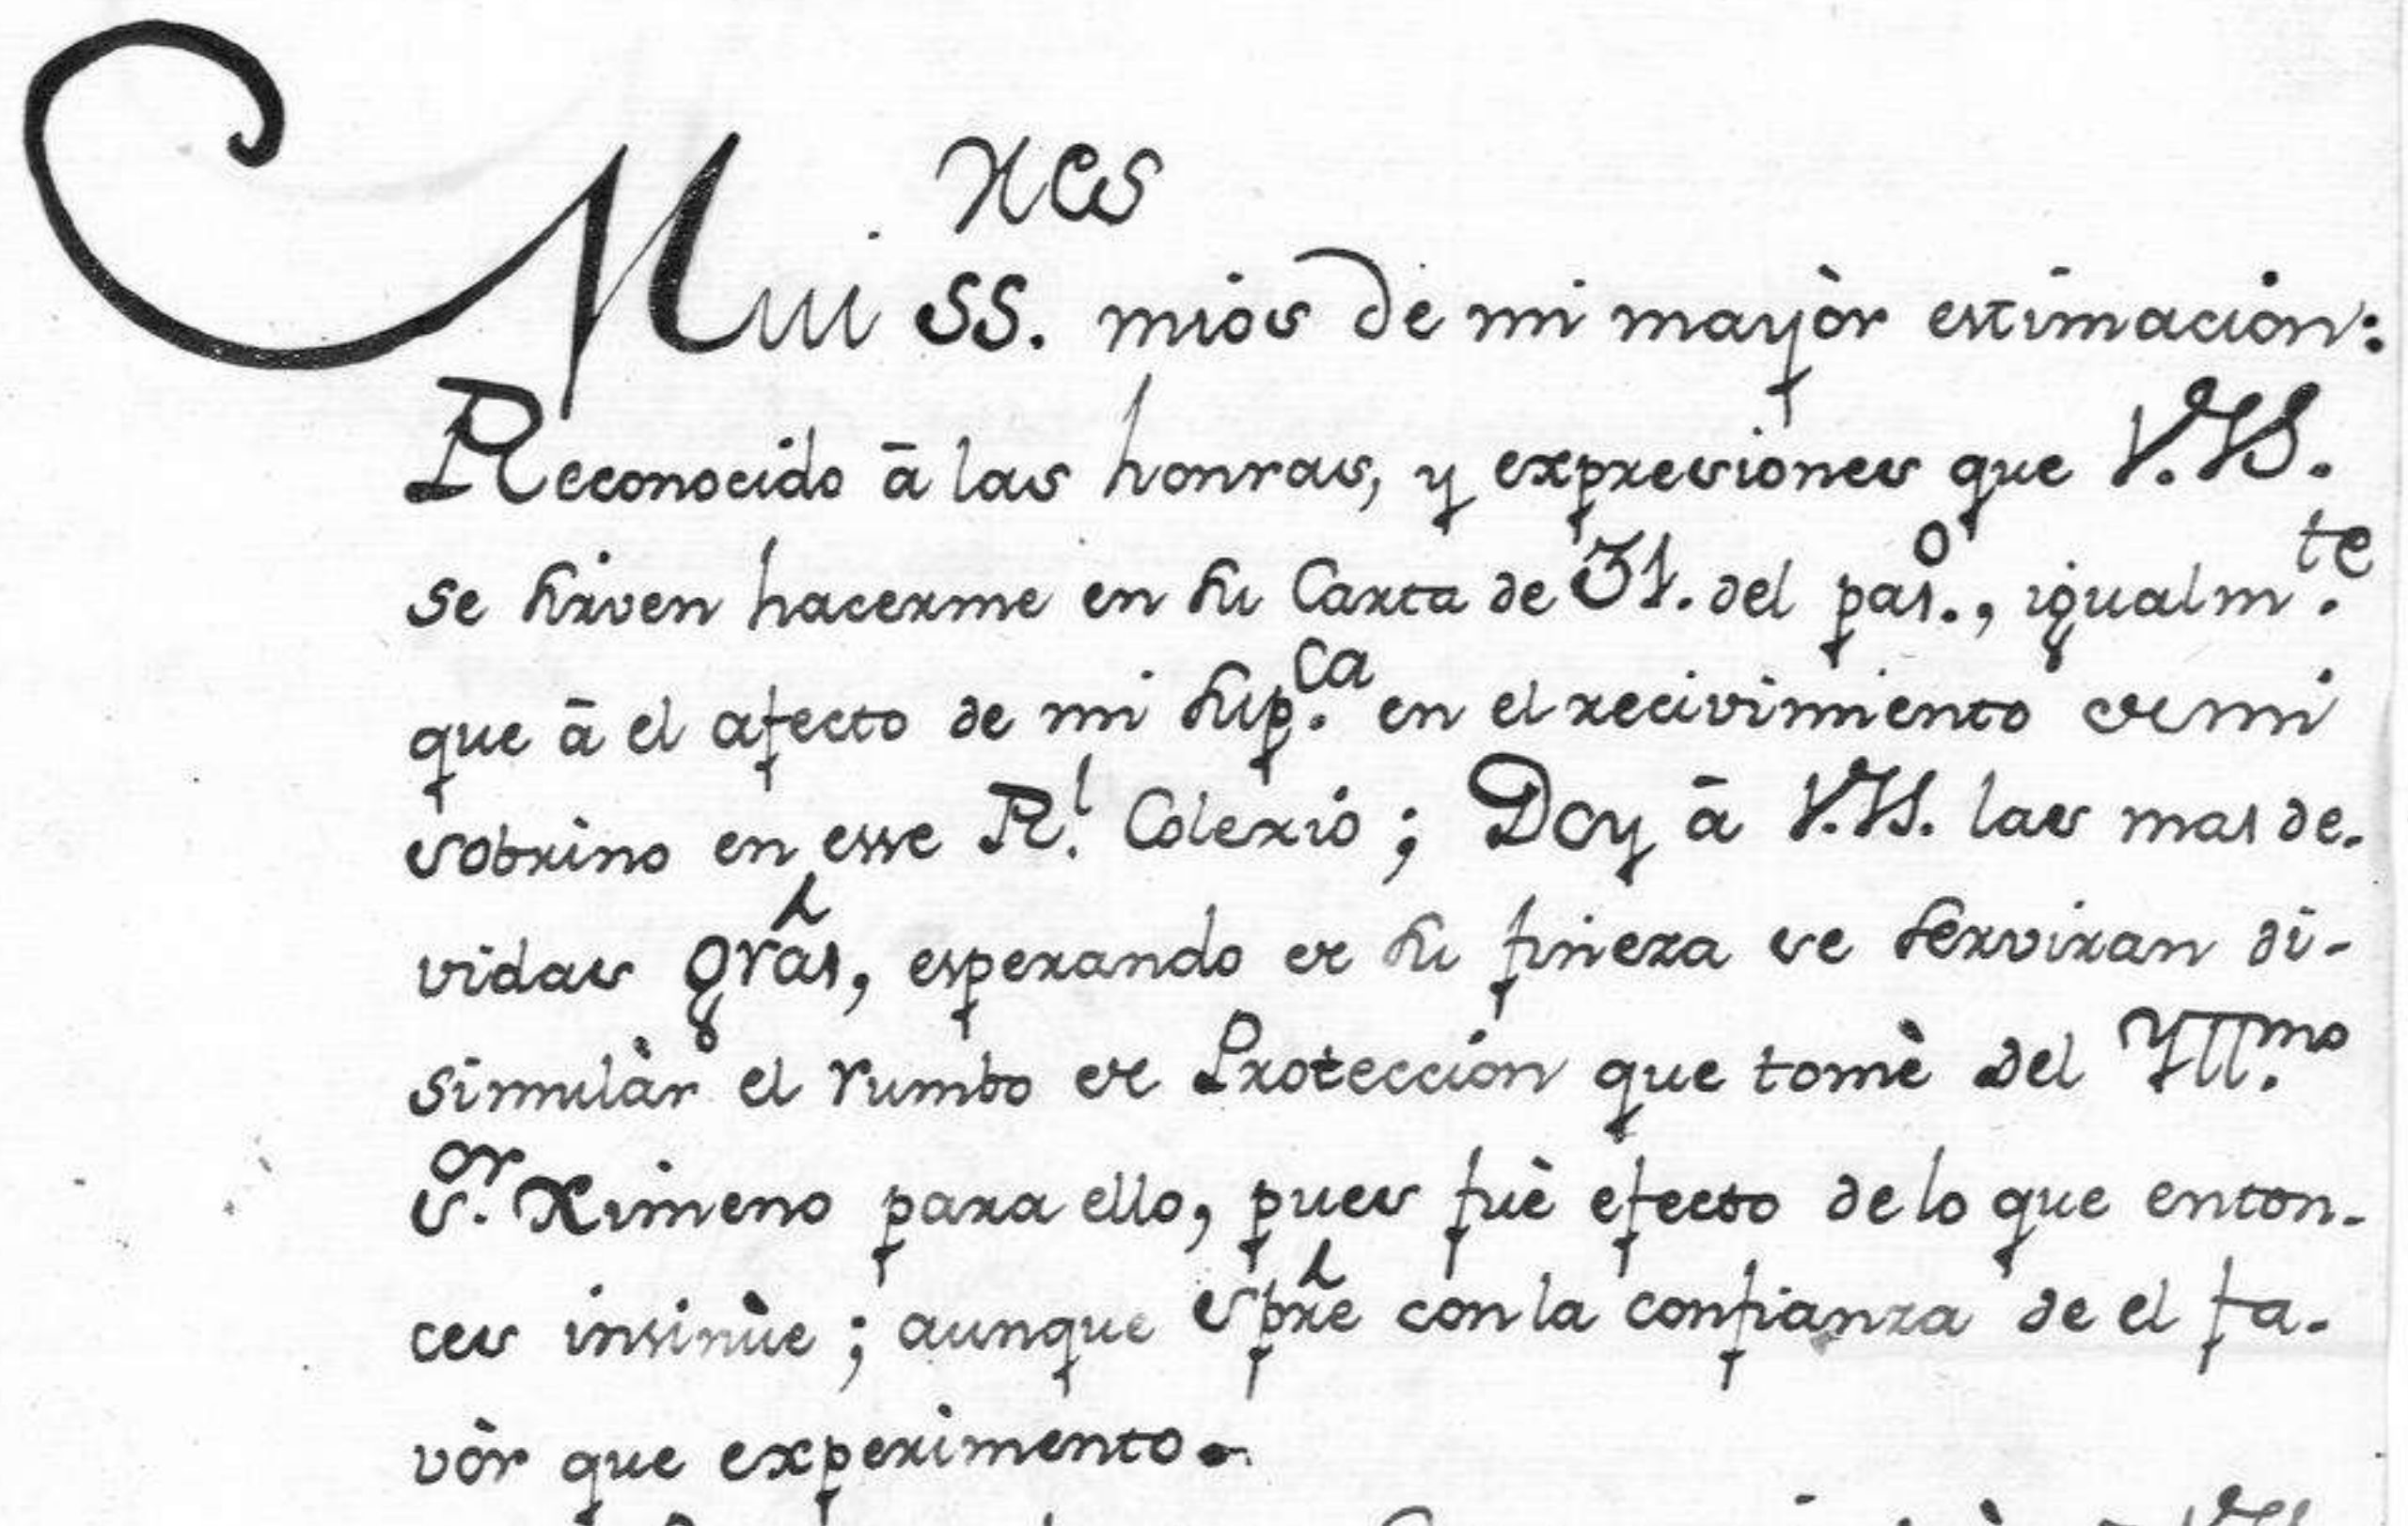 Mui SS.res mios de mi mayòr estimacion:
Reconocido ā las honras, y expresiones que V.SS.
se sirven hacerme en su Carta de 31. del pas.o, igualm.te
que ā el afecto de mi sup.ca en el recivimiento de mi
sobrino en esse R.l Colexio; Doy ā V.SS. las mas de-
vidas gras, esperando de su fineza se serviran di-
simulàr el rumbo de Proteccion que tomè del Yll.mo
S.or Ximeno para ello, pues fuè efecto de lo que enton-
ces insinùe; aunque spre con la confianza de el fa-
vòr que experimento.